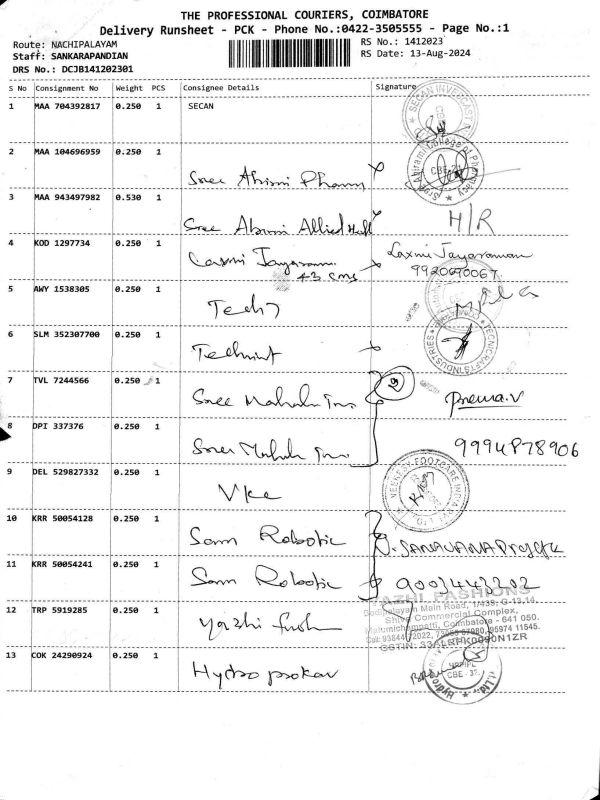 THE PROFESSIONAL COURIERS, COIMBATORE
Delivery Runsheet - PCK - Phone No.:0422-3505555 - Page No.:1
Route: NACHIPALAYAM
RS No.: 1412023
Staff: SANKARAPANDIAN
RS Date: 13-Aug-2024
DRS No.: DCJB141202301
S No Consignment No Weight PCS Consignee Details Signature
1 MAA 704392817 0.250 1 SECAN
SECAN INVESCAST
2 MAA 104696959 0.250 1
Sree Abirami College of Pharmacy
CBE-21
Sree Abirmi Pharm
3 MAA 943497982 0.530 1
H/R
Sree Abirmi Allied
4 KOD 1297734 0.250 1 Laxmi Jayaraman
Laxmi Jayaraman
9920690067
43 cms
5 AWY 1538305 0.250 1
Tech
6 SLM 352307700 0.250 1
TECNICRAFTS INDUSTRIES
COIMBATORE
7 TVL 7244566 0.250 1
Sree Mahalu Inn
Prema.V
8 DPI 337376 0.250 1
9994878906
9 DEL 529827332 0.250 1
VEEKESY FOOTCARE INDIA
Vkc
10 KRR 50054128 0.250 1
Sam Robotic
11 KRR 50054241 0.250 1
Sam Robotic
9003443202
YAZHI FASHIONS
12 TRP 5919285 0.250 1
Main Road, 1/439, G-13,14,
Shiva Commercial Complex,
Malumichampatti, Coimbatore - 641 050.
yazhi
13 COK 24290924 0.250 1
HPPIPL
CBE - 32
Hydro prokav